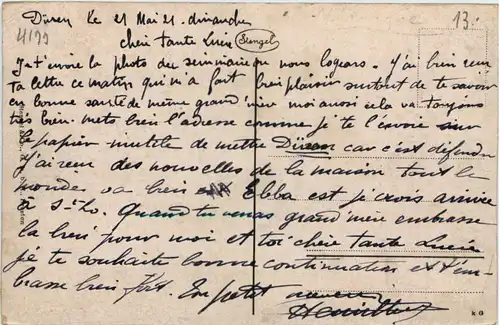 Düren le 21 Mai 21. dimanche
13.
4199
Stengel
chère tante Lucie
Je t'envoie la photo du séminaire ou nous logeons. J'ai bien reçu
ta lettre ce matin qui m'a fait bien plaisir surtout de te savoir
en bonne santé de même grand'mère moi aussi cela va toujours
très bien. mets bien l'adresse comme je te l'envoie sur
le papier inutile de mettre Düren car c'est défendu
J'ai reçu des nouvelles de la maison tout le
monde va bien Ebba est je crois arrivée
à St-Lo. Quand tu verras grand'mère embrasse
la bien pour moi et toi chère tante Lucie
je te souhaite bonne continuation et t'em-
brasse bien fort. Ton petit neveu
KG